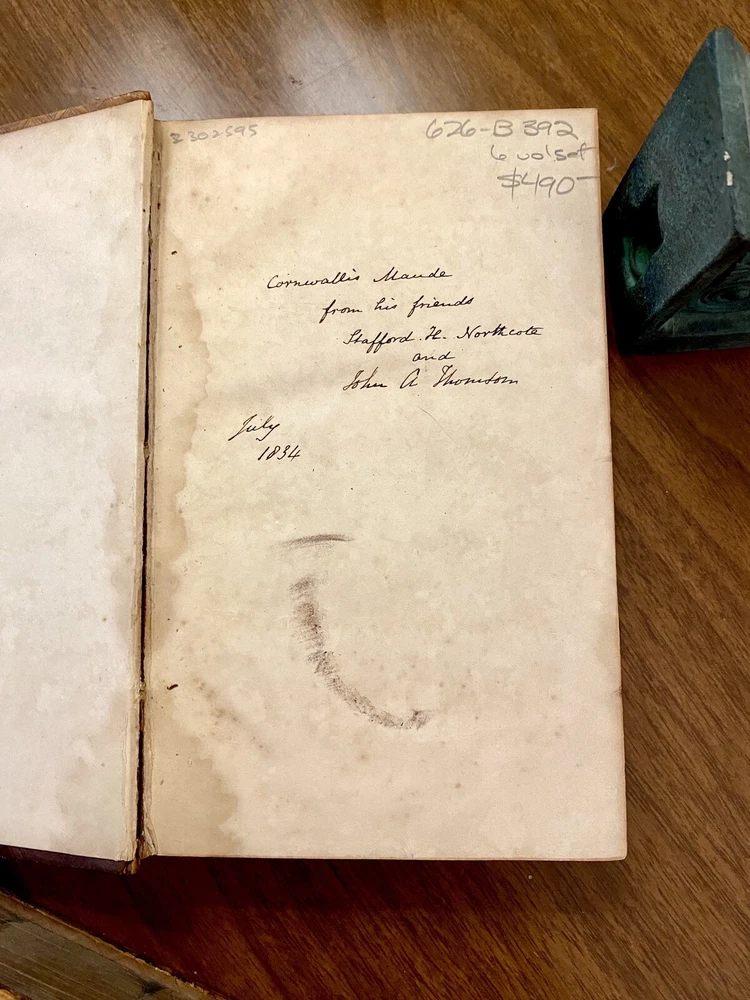 2302595
626-B 392
6 vol set
$490-
Cornwallis Maude
from his friends
Stafford. H. Northcote
and
John A Thomson
July
1834